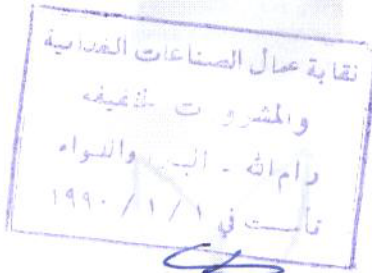 نقابة عمال الصناعات الغذائية
والمشروبات الخفيفه
رام الله - البيره واللواء
تأسست في ١ / ١ / ١٩٩٠